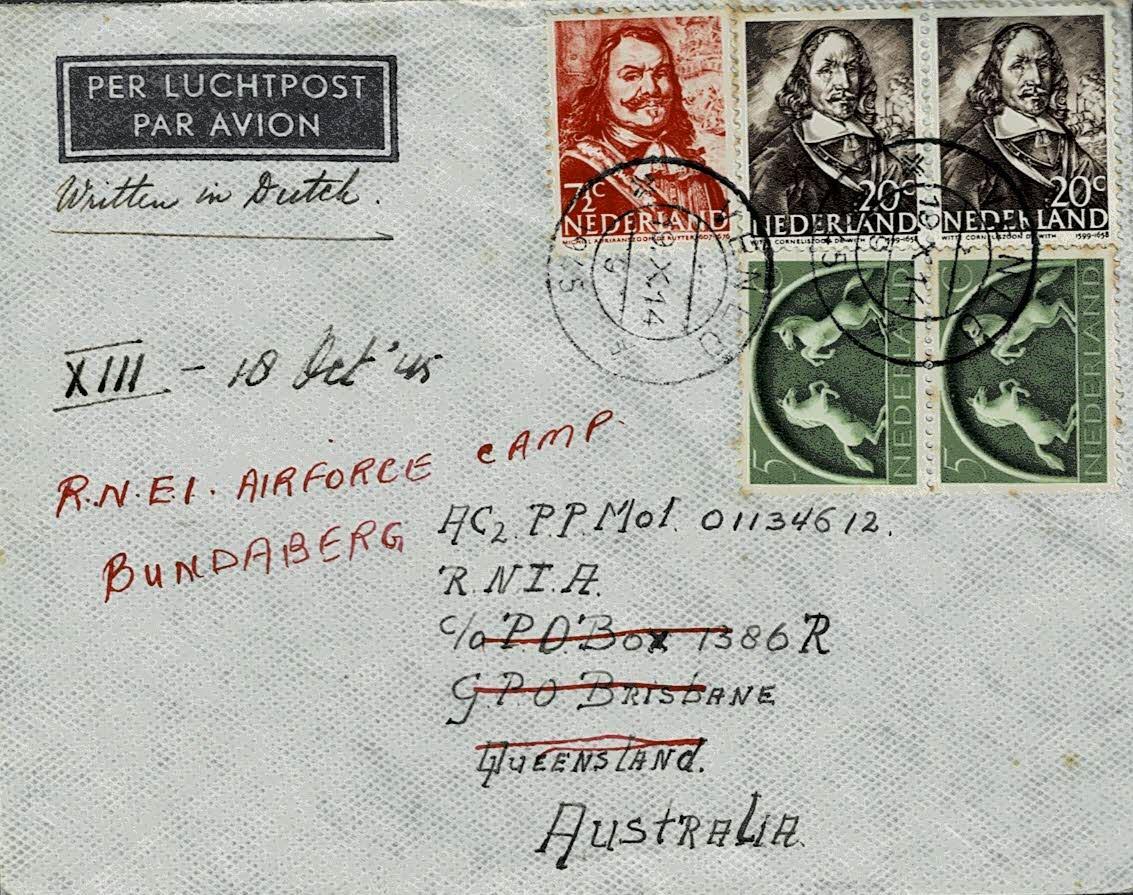 PER LUCHTPOST
PAR AVION
Written in Dutch.
7½c
NEDERLAND
MICHIEL ADRIAANSZOON DE RUYTER 1607-1676
20c
NEDERLAND
WITTE CORNELISZOON DE WITH 1599-1658
20c
NEDERLAND
WITTE CORNELISZOON DE WITH 1599-1658
VENLO
19.X.14
1945
VENLO
19.X.14
5c
NEDERLAND
5c
NEDERLAND
XIII - 18 Oct '45
R.N.E.I. AIRFORCE CAMP.
BUNDABERG
AC2. P.P. Mol. 01134612.
R.N.I.A.
c/o P.O. Box 1386R
GPO BRISBANE
QUEENSLAND.
AUSTRALIA.